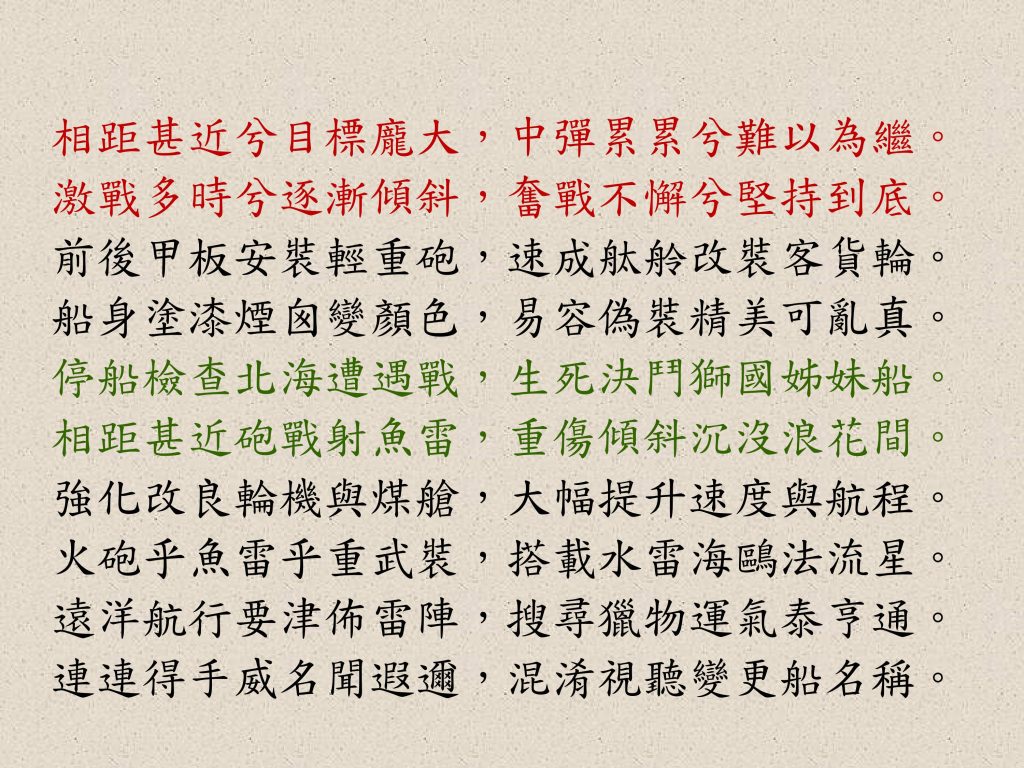 相距甚近兮目標龐大，中彈累累兮難以為繼。
激戰多時兮逐漸傾斜，奮戰不懈兮堅持到底。
前後甲板安裝輕重砲，速成舦舲改裝客貨輪。
船身塗漆煙囪變顏色，易容偽裝精美可亂真。
停船檢查北海遭遇戰，生死決鬥獅國姊妹船。
相距甚近砲戰射魚雷，重傷傾斜沉沒浪花間。
強化改良輪機與煤艙，大幅提升速度與航程。
火砲乎魚雷乎重武裝，搭載水雷海鷗法流星。
遠洋航行要津佈雷陣，搜尋獵物運氣泰亨通。
連連得手威名聞遐邇，混淆視聽變更船名稱。